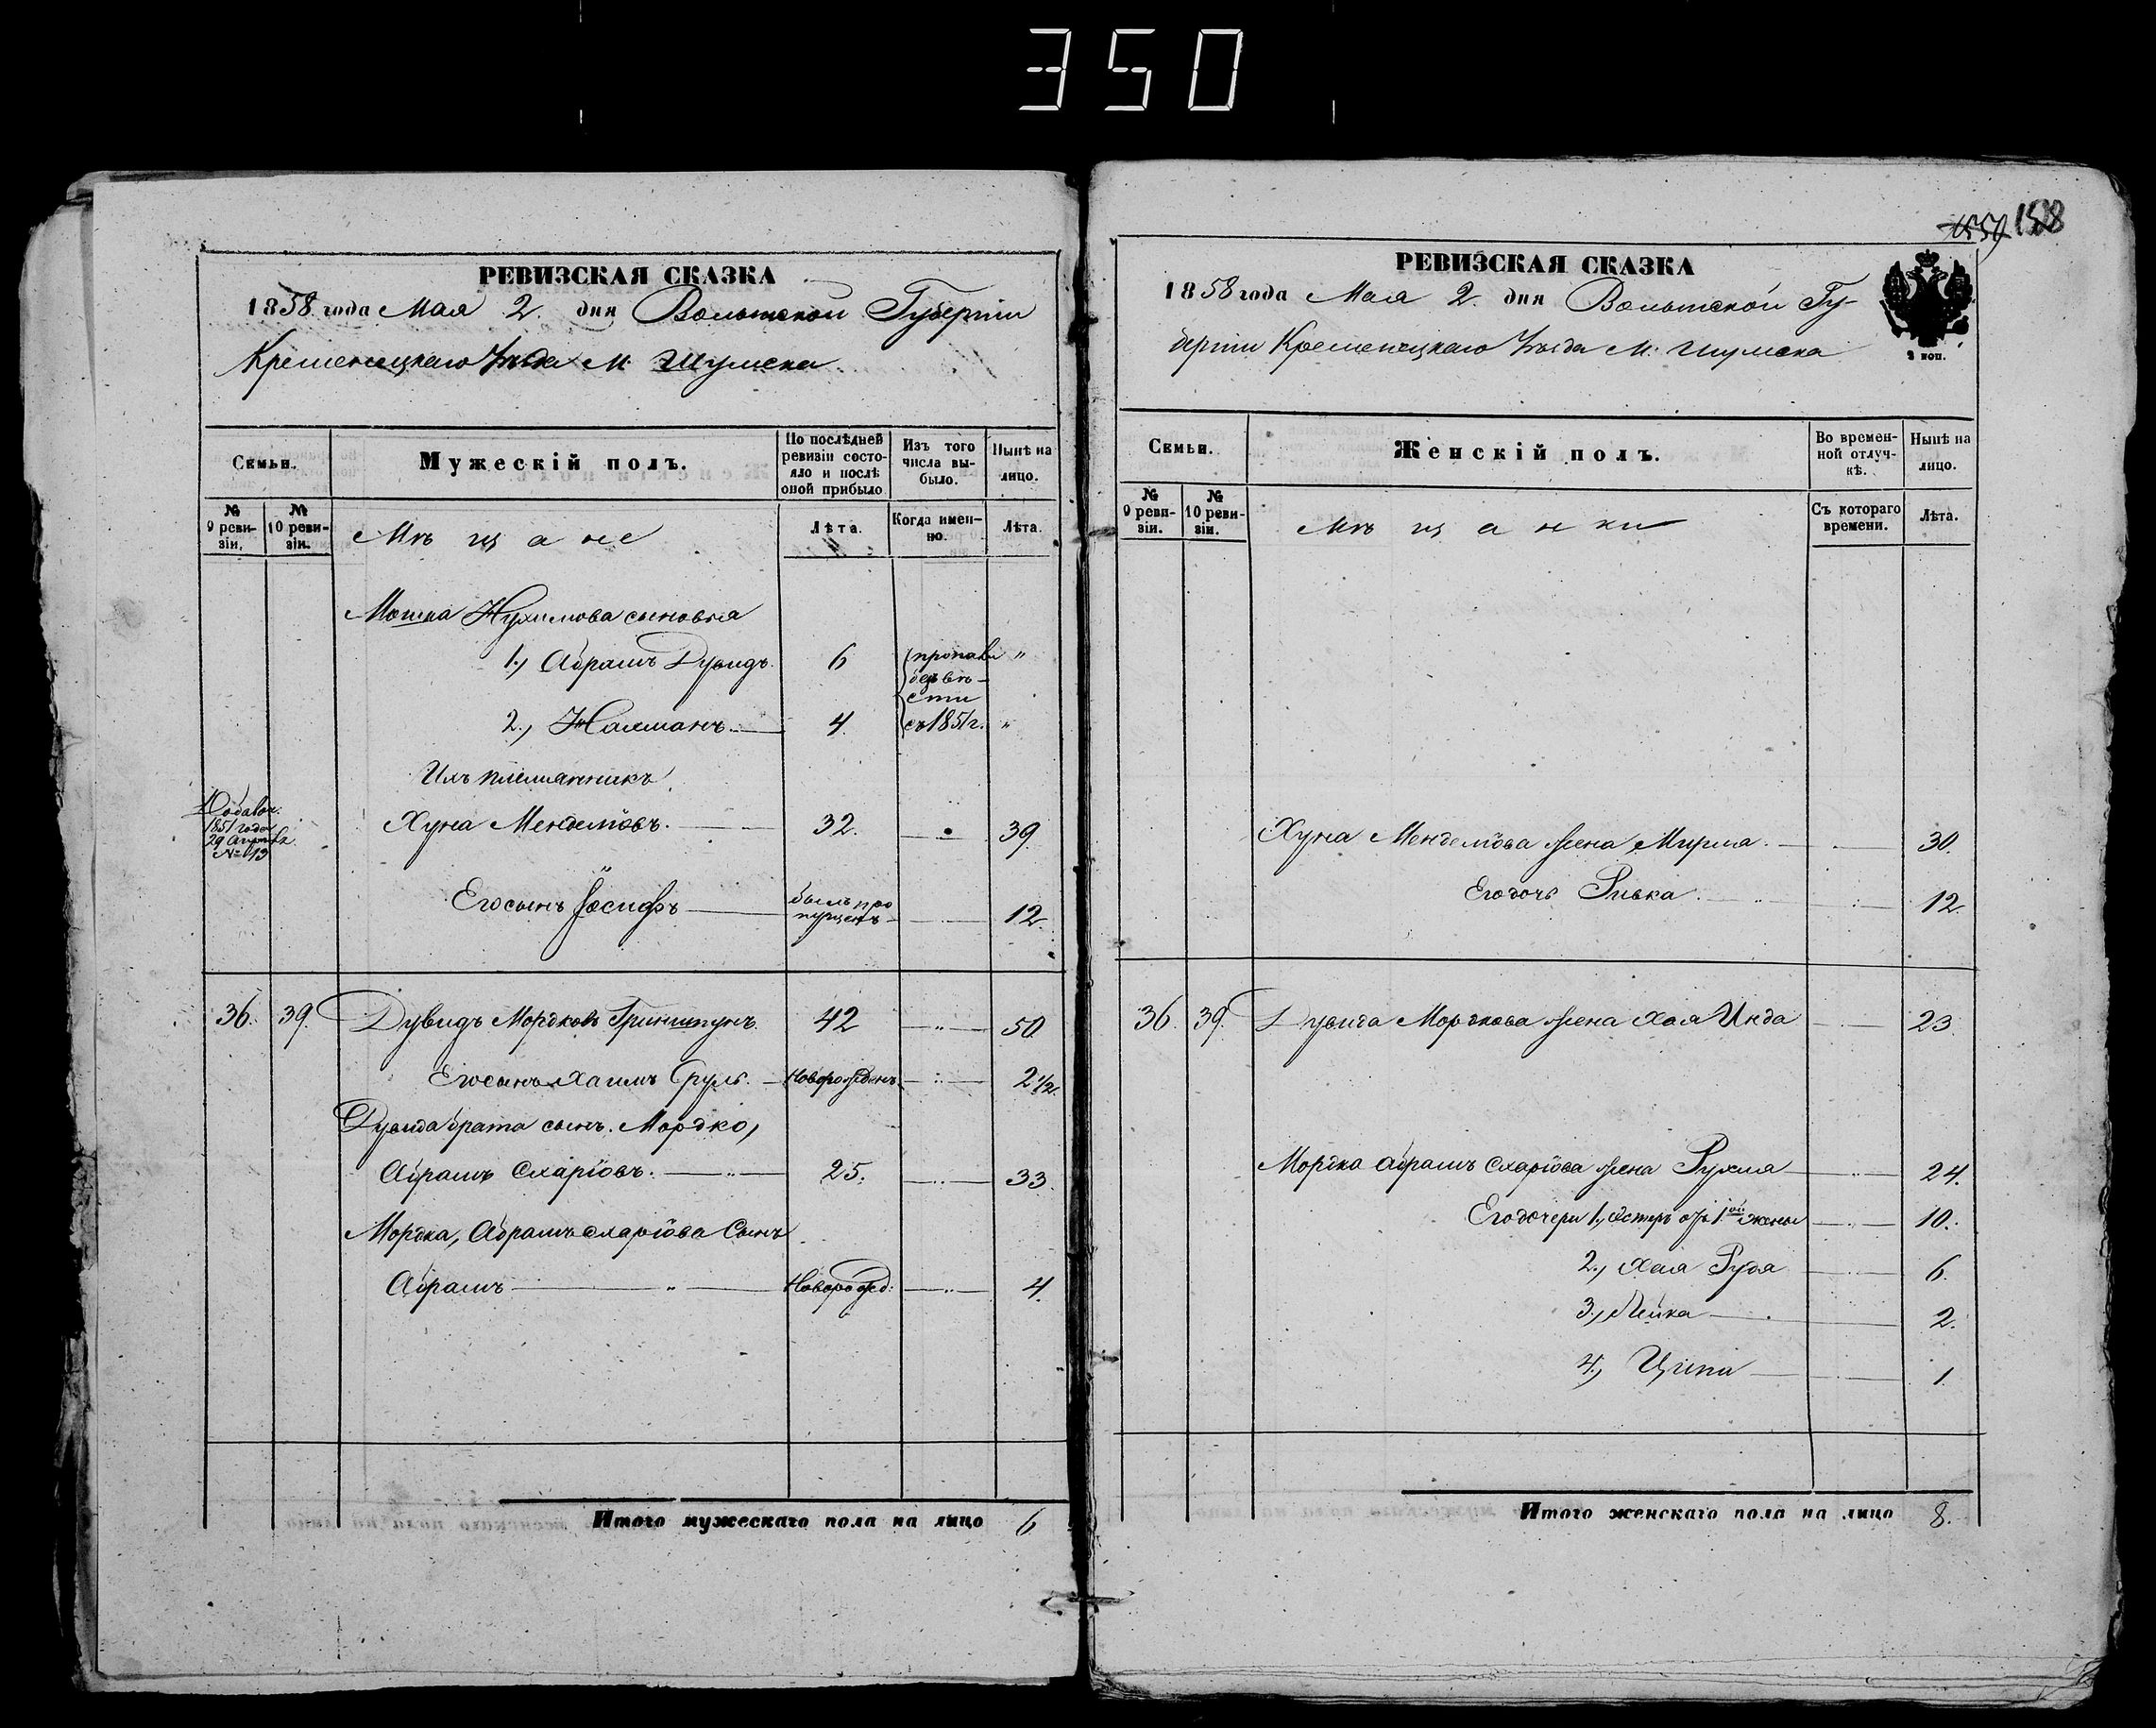 350
РЕВИЗСКАЯ СКАЗКА
1858 года Мая 2 дня Волынской Губерніи
Кременецкаго Уѣзда М. Шумска
Семьи.
Мужескій полъ.
По послѣдней ревизіи состояло и послѣ оной прибыло
Изъ того числа выбыло.
Нынѣ на лицо.
№ 9 ревизіи.
№ 10 ревизіи.
Мѣщане
Лѣта.
Когда именно.
Лѣта.
Мошка Нухимова сыновья
1., Абрамъ Дувидъ 6 пропавши "
безвѣсти
2., Налманъ 4 съ 1851 г. "
Ихъ племянникъ
Добавоч. 1851 года 29 № 13
Хуна Менделіовъ. 32. 39
Его сынъ Іосифъ былъ пропущенъ 12.
36. 39. Дувидъ Мордковъ Гриншпунъ. 42 50
Его сынъ Хаимъ Сруль. Новорожденъ 2 1/2.
Дувида брата сынъ. Мордко,
Абрамъ Схаріовъ. 25. 33.
Мордка, Абрамъ Схаріова Сынъ
Абрамъ Новорожд: 4.
Итого мужескаго пола на лицо 6
158
РЕВИЗСКАЯ СКАЗКА
1858 года Мая 2 дня Волынской Гу-
берніи Кременецкаго Уѣзда М. Шумска
2 коп.
Семьи.
Женскій полъ.
Во временной отлучкѣ.
Нынѣ на лицо.
№ 9 ревизіи.
№ 10 ревизіи.
Мѣщанки
Съ котораго времени.
Лѣта.
Хуна Менделіова жена Мирма. 30.
Его дочь Ривка. 12.
36. 39. Дувида Мордкова жена Хая Инда 23.
Мордка Абрамъ Схаріова жена Рухма 24.
Его дочери 1., Эстеръ отъ 1ой жены 10.
2., Хая Рудя 6.
3., Лейка 2.
4., Ципа 1.
Итого женскаго пола на лицо 8.